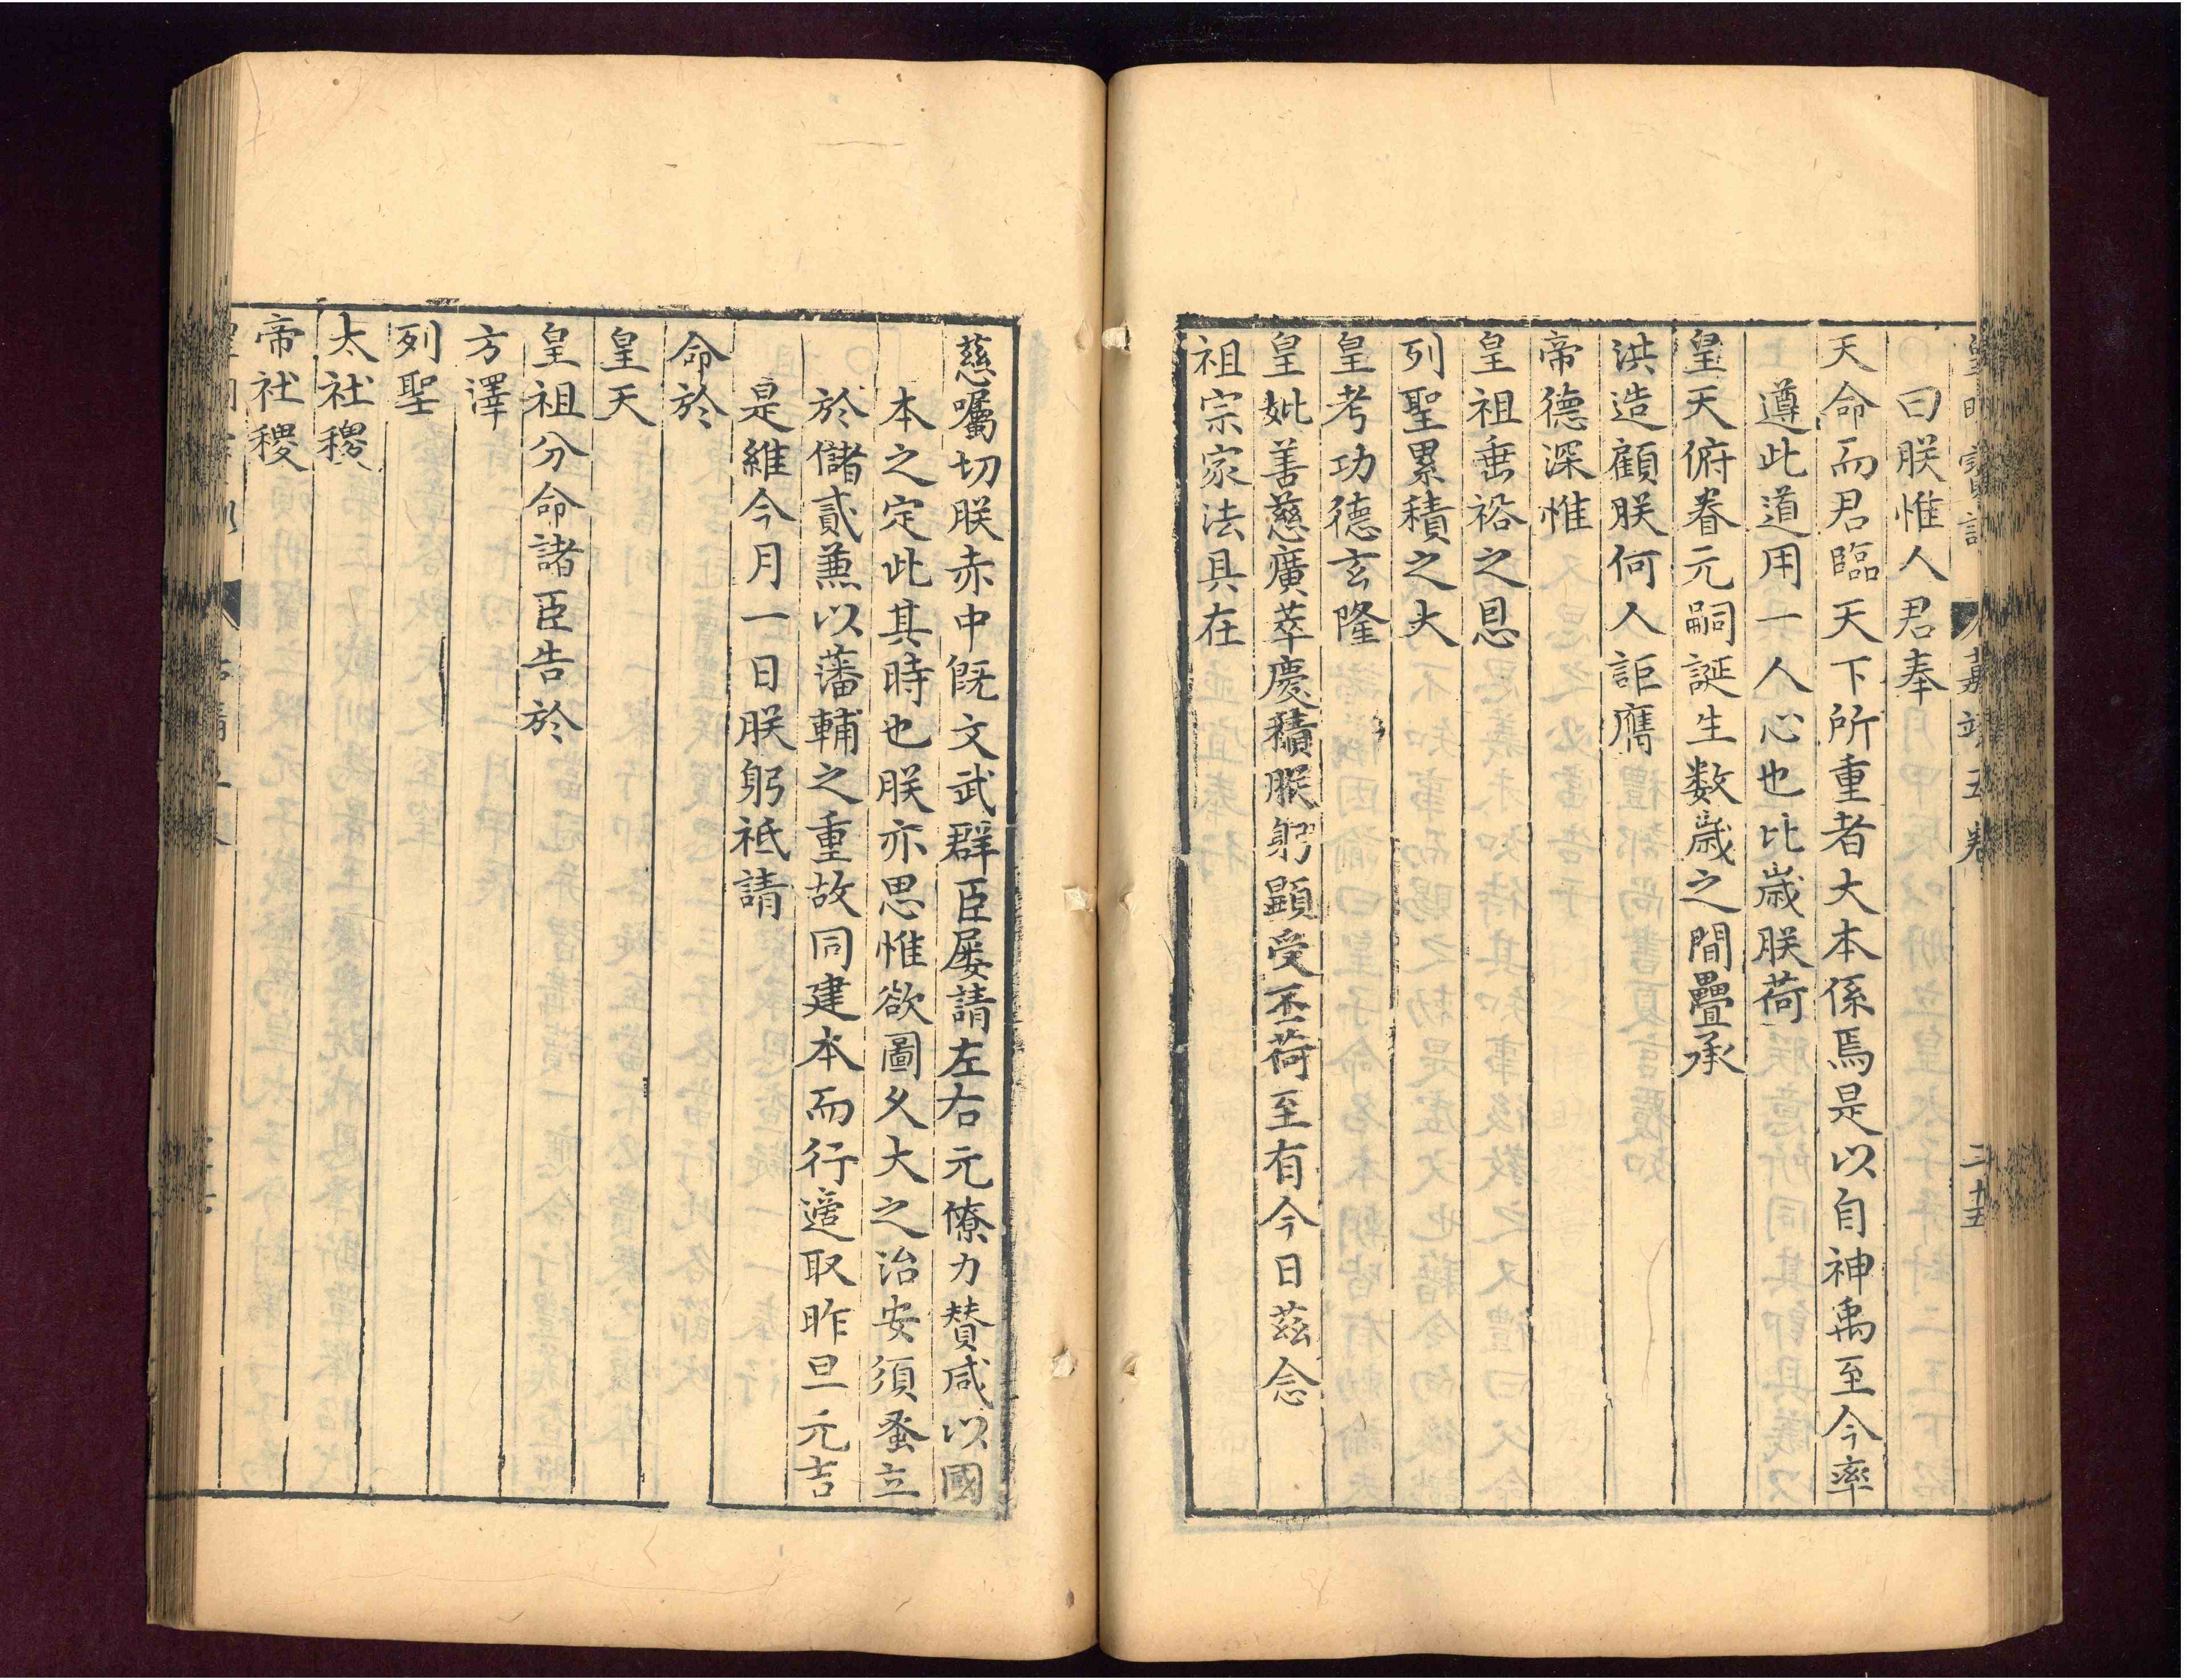 嘉靖五卷
二十五
曰朕惟人君奉
天命而君臨天下所重者大本係焉是以自神禹至今率
遵此道用一人心也比歲朕荷
皇天俯眷元嗣誕生数歲之間疊承
洪造顧朕何人詎膺
帝德深惟
皇祖垂裕之恩
列聖累積之大
皇考功德玄隆
皇妣善慈廣萃慶積朕躬顯受丕荷至有今日茲念
祖宗家法具在
慈囑切朕赤中旣文武群臣屡請左右元僚力賛咸以國
本之定此其時也朕亦思惟欲圖久大之治安須蚤立
於儲貳兼以藩輔之重故同建本而行適取昨旦元吉
是維今月一日朕躬祗請
命於
皇天
皇祖分命諸臣告於
方澤
列聖
太社稷
帝社稷